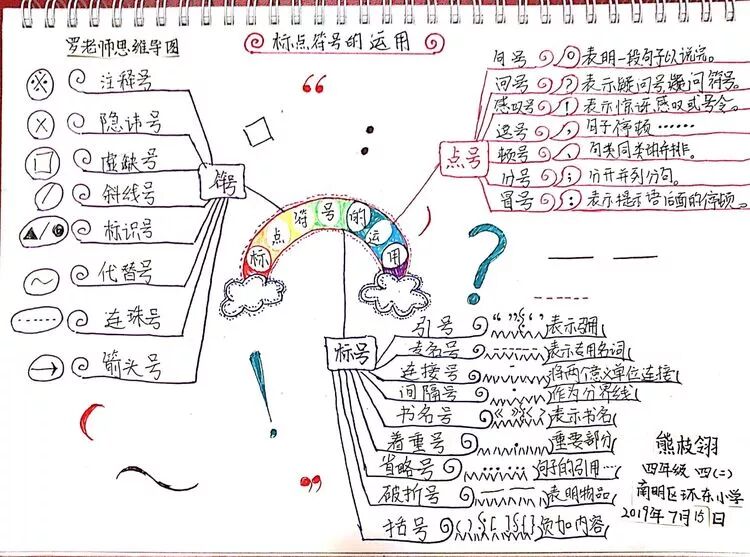 罗老师思维导图
标点符号的运用
标点符号的运用
符号
注释号
隐讳号
虚缺号
斜线号
标识号
代替号
连珠号
箭头号
点号
句号 。 表明一段句子以说完。
问号 ? 表示疑问号疑问符号。
感叹号 ! 表示惊讶感叹或号令。
逗号 , 句子停顿……
顿号 、 句类同类排。
分号 ; 分开并列分句。
冒号 : 表示提示语后面的停顿。
标号
引号 表示引用
专名号 表示专用名词
连接号 将两个意义单位连接
间隔号 作为分界线
书名号 表示书名
着重号 重要部分
省略号 句子的引用…
破折号 表明物品
括号 加内容
熊枝翎
四年级 四(二)
南明区环东小学
2019年7月15日